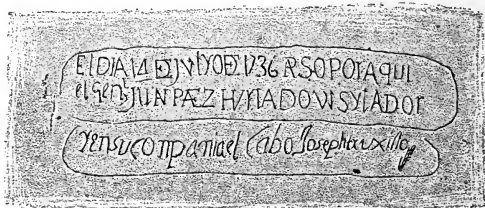 El DIA 14 DE JVlYO DE 1736 PASO POr AQUI
el genl JUN PÆZ HVrTADO VISYTADOr
Y en su conpania el Cabo Joseph truxillo